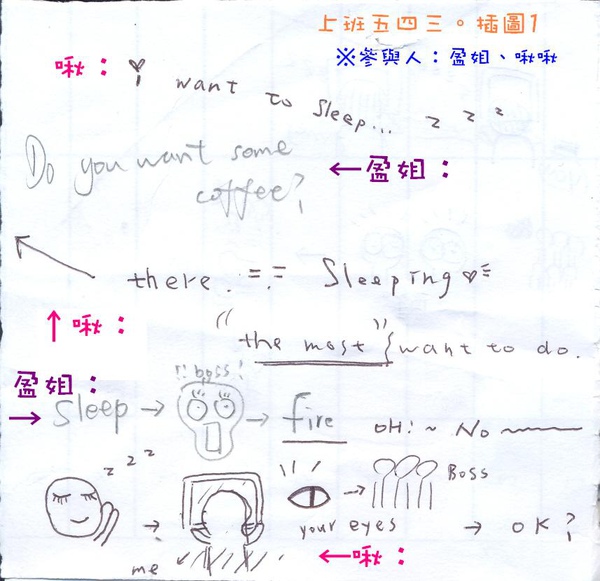 上班五四三。插圖1
※參與人：盈姐、啾啾
啾： I want to sleep... z z z
Do you want some
coffee?
←盈姐：
there. =.= Sleeping
↑啾：
"the most" I want to do.
盈姐：
→ sleep → !! boss! → fire OH!~ No
z z z
→ your eyes → Boss → OK?
me
←啾：